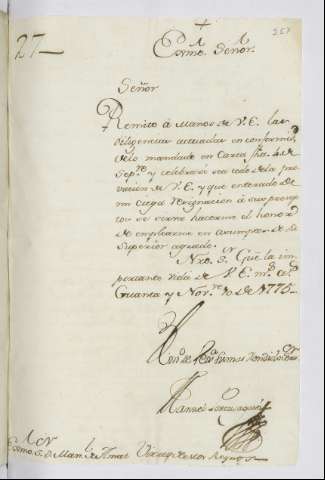 27
257
+
Exmo. Señor.
Señor
Remito á Manos de V.E. las
diligencias actuadas en conformid.
de lo mandado en Carta fha. 4 de
Sep.re y celebraré sea todo de la aprovación de V.E. y que enterado de
mi ciega resignacion á sus preceptos se sirva hacerme el honor
de emplearme en asumptos de su
Superior agrado.
Nro. S.r Gue. la importante vida de V.E. m.s a.s
Guanta y Nov.re 10 de 1775
Manuel
Exmo. S.r D. Man.l de Amat Virrey de estos Reynos